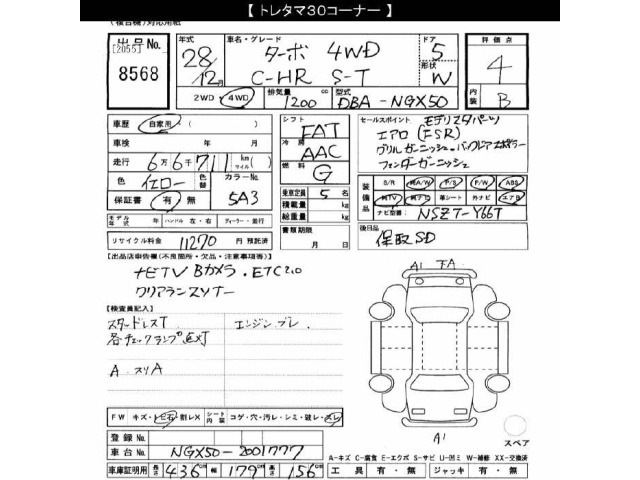 【 トレタマ30コーナー 】
(複合機)対応用紙
出品 No. 年式 車名・グレード ターボ 4WD ドア 5 評価点
[2055] 28 C-HR S-T 形状 W 4
8568 12月
2WD 4WD 排気量 1200 cc 型式 DBA-NGX50 内装 B
車歴 自家用( ) シフト FAT セールスポイント モデリスタパーツ
車検 年 月 冷房 AAC エアロ(ESR)
走行 6万6千711 km(マイル) 燃料 G グリルガーニッシュ・バックドアスポイラー
フェンダーガーニッシュ
色 イエロー 色替 カラーNo. 5A3 乗車定員 5 名
保証書 有・無 積載量 kg
総重量 kg
装備品 S/R A/W P/S P/W ABS
MTV Mナビ 革シート 外ナビ エアB
ナビ型番 NSZT-Y66T
モデル年式 年 ハンドル 左・右 ディーラー・並行
書類期限 月 日
後日品 保取SD
リサイクル料金 11270 円 預託済
【出品店申告欄(不良箇所・欠品・注意事項等)】
ナビTV Bカメラ・ETC2.0
クリアランスソナー
A1 下A
【検査員記入】
スタッドレスT エンジンブレ.
各チェックランプ点灯
A スリA
FW キズ・トビ石・割レX シート内装 コゲ・穴・汚レ・シミ・破レ・スレ
A1
スペア
登録No.
車台No. NGX50-2001777
A-キズ C-腐食 E-エクボ S-サビ U-凹ミ W-補修 XX-交換済
車庫証明用 長さ 436 cm 幅 179 cm 高さ 156 cm 工具 有・無 ジャッキ 有・無